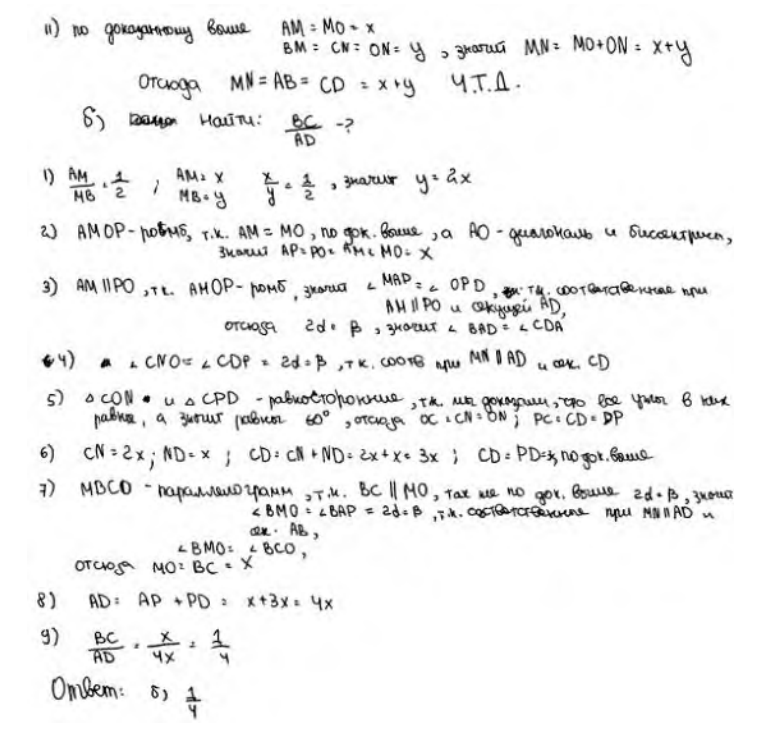 11) по доказанному выше AM = MO = x
BM = CN = ON = y, значит MN = MO+ON = x+y
Отсюда MN = AB = CD = x+y Ч.Т.Д.
б) Найти: BC/AD -?
1) AM/MB = 1/2 ; AM = x MB = y x/y = 1/2, значит y = 2x
2) AMOP - ромб, т.к. AM = MO, по док. выше, а AO - диагональ и биссектриса,
значит AP = PO = AM = MO = x
3) AM || PO, т.к. AMOP - ромб, значит ∠ MAP = ∠ OPD, т.к. соответственные при
AM || PO и секущей AD,
отсюда 2d = β, значит ∠ BAD = ∠ CDA
4) ∠ CNO = ∠ CDP = 2d = β, т.к. соотв при MN || AD и сек. CD
5) △ CON и △ CPD - равносторонние, т.к. мы доказали, что все углы в них
равны, а значит равны 60°, отсюда OC = CN = ON ; PC = CD = DP
6) CN = 2x ; ND = x ; CD = CN + ND = 2x + x = 3x ; CD = PD = 3x, по док. выше
7) MBCO - параллелограмм, т.к. BC || MO, так же по док. выше 2d = β, значит
∠ BMO = ∠ BAP = 2d = β, т.к. соответственные при MN || AD и
сек. AB,
∠ BMO = ∠ BCO,
отсюда MO = BC = x
8) AD = AP + PD = x + 3x = 4x
9) BC/AD = x/4x = 1/4
Ответ: б) 1/4